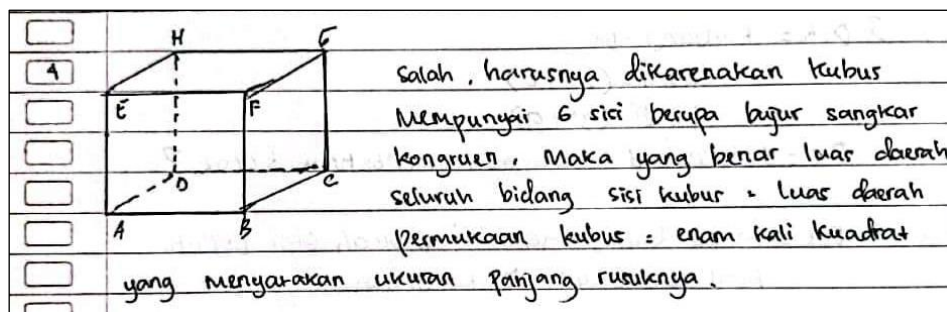 H G
4 salah, harusnya dikarenakan kubus
E F
Mempunyai 6 sisi berupa bujur sangkar
kongruen. Maka yang benar luas daerah
D C
seluruh bidang sisi kubur = luas daerah
A B
permukaan kubus = enam kali kuadrat
yang menyatakan ukuran panjang rusuknya.